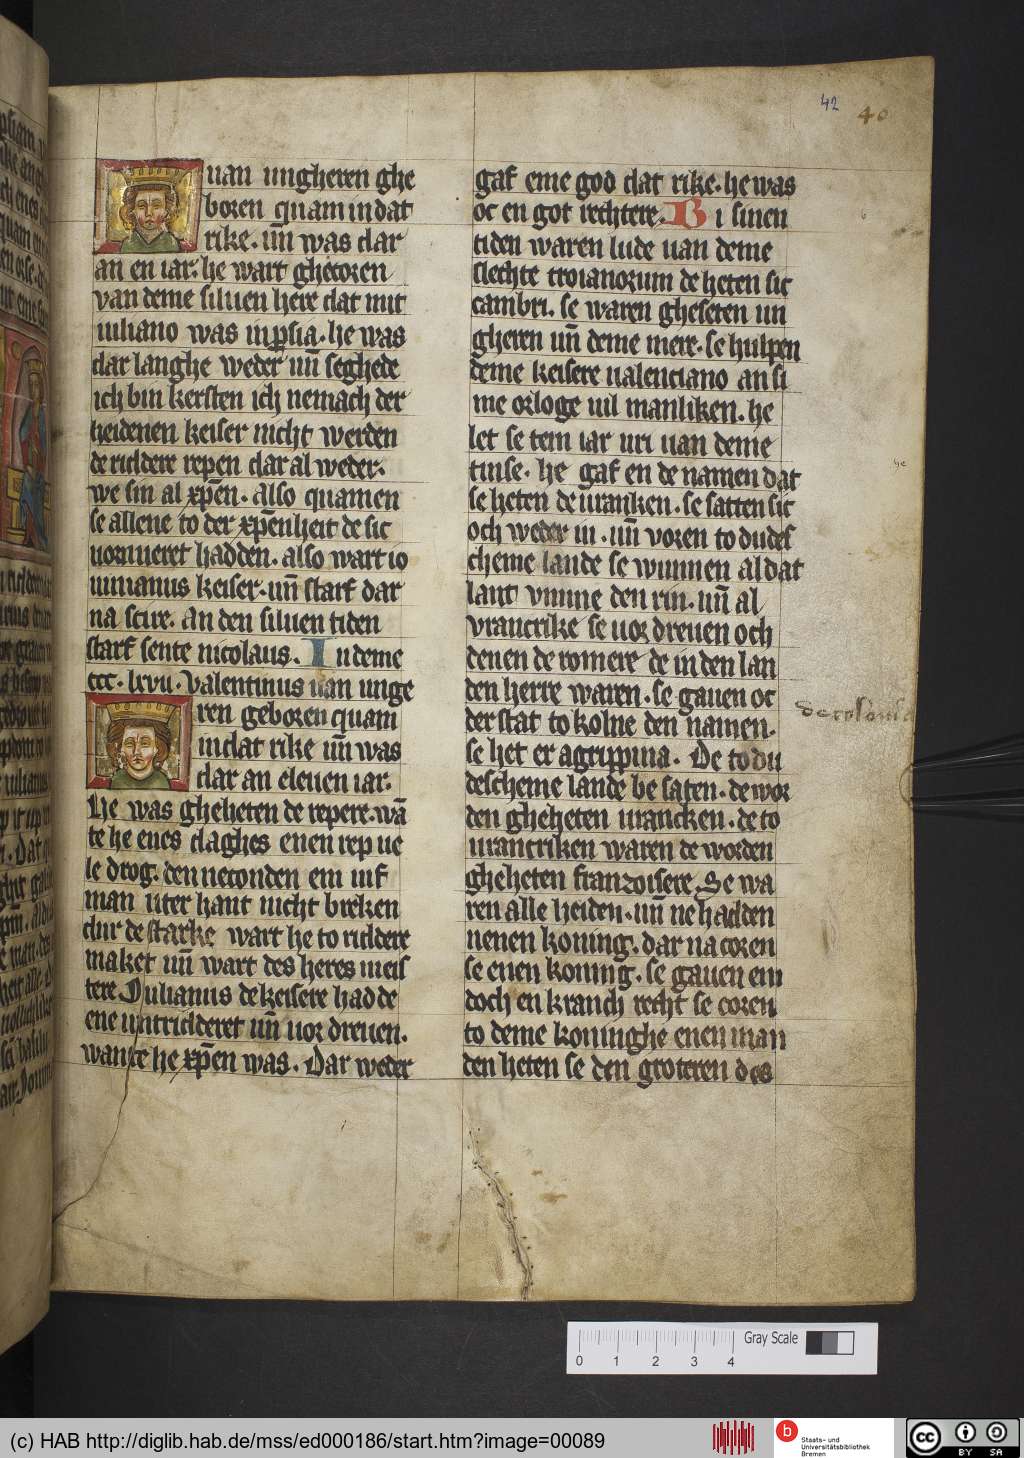 42 40
uan ungheren ghe
boren quam in dat
rike. uñ was dar
an en iar. he wart ghecoren
van deme siluen here dat mit
iuliano was in psia. he was
dar langhe weder uñ seghede
ich bin kersten ich nemach der
heidenen keiser nicht werden
de riddere repen dar al weder.
we sin al xp̄en. also quamen
se allene to der xp̄enheit de sic
uoruueret hadden. also wart io
uinianus keiser. uñ starf dar
na scire. An den siluen tiden
starf sente nicolaus. In deme
ccc. lxvii. Valentinus uan unge
ren geboren quam
in dat rike uñ was
dar an eleuen iar.
He was gheheten de repere. wā
te he enes daghes enen rep ue
le drog. den ne conden em uif
man uter hant nicht breken
dur de starke wart he to riddere
maket uñ wart des heres meis
tere Julianus de keisere hadde
ene untridderet uñ uor dreuen.
wante he xp̄en was. Dar weder
gaf eme god dat rike. he was
oc en got rechtere. Bi sinen
tiden waren lude uan deme
slechte troianorum de heten sic
cambri. se waren gheseten un
gheren uñ deme mere. se hulpen
deme keisere ualenciano an si
me orloge uil manliken. he
let se tein iar uri uan deme
tinse. he gaf en de namen dat
se heten de uranken. se satten sic
och weder in. uñ voren to dudes
cheme lande se wunnen al dat
lant vmme den rin. uñ al
vrancrike se uor dreuen och
denen de romere de in den lan
den herre waren. se gauen oc
der stat to kolne den namen.
de colonia
se het er agrippina. De to du
descheme lande be saten. de wor
den gheheten urancken. de to
urancriken waren de worden
gheheten franzoisere. Se wa
ren alle heiden. uñ ne hadden
nenen koning. dar na coren
se enen koning. se gauen em
doch en kranch recht se coren
to deme koninghe enen man
den heten se den groteren des
0 1 2 3 4 Gray Scale
(c) HAB http://diglib.hab.de/mss/ed000186/start.htm?image=00089
b Staats- und
Universitätsbibliothek
Bremen
cc BY SA